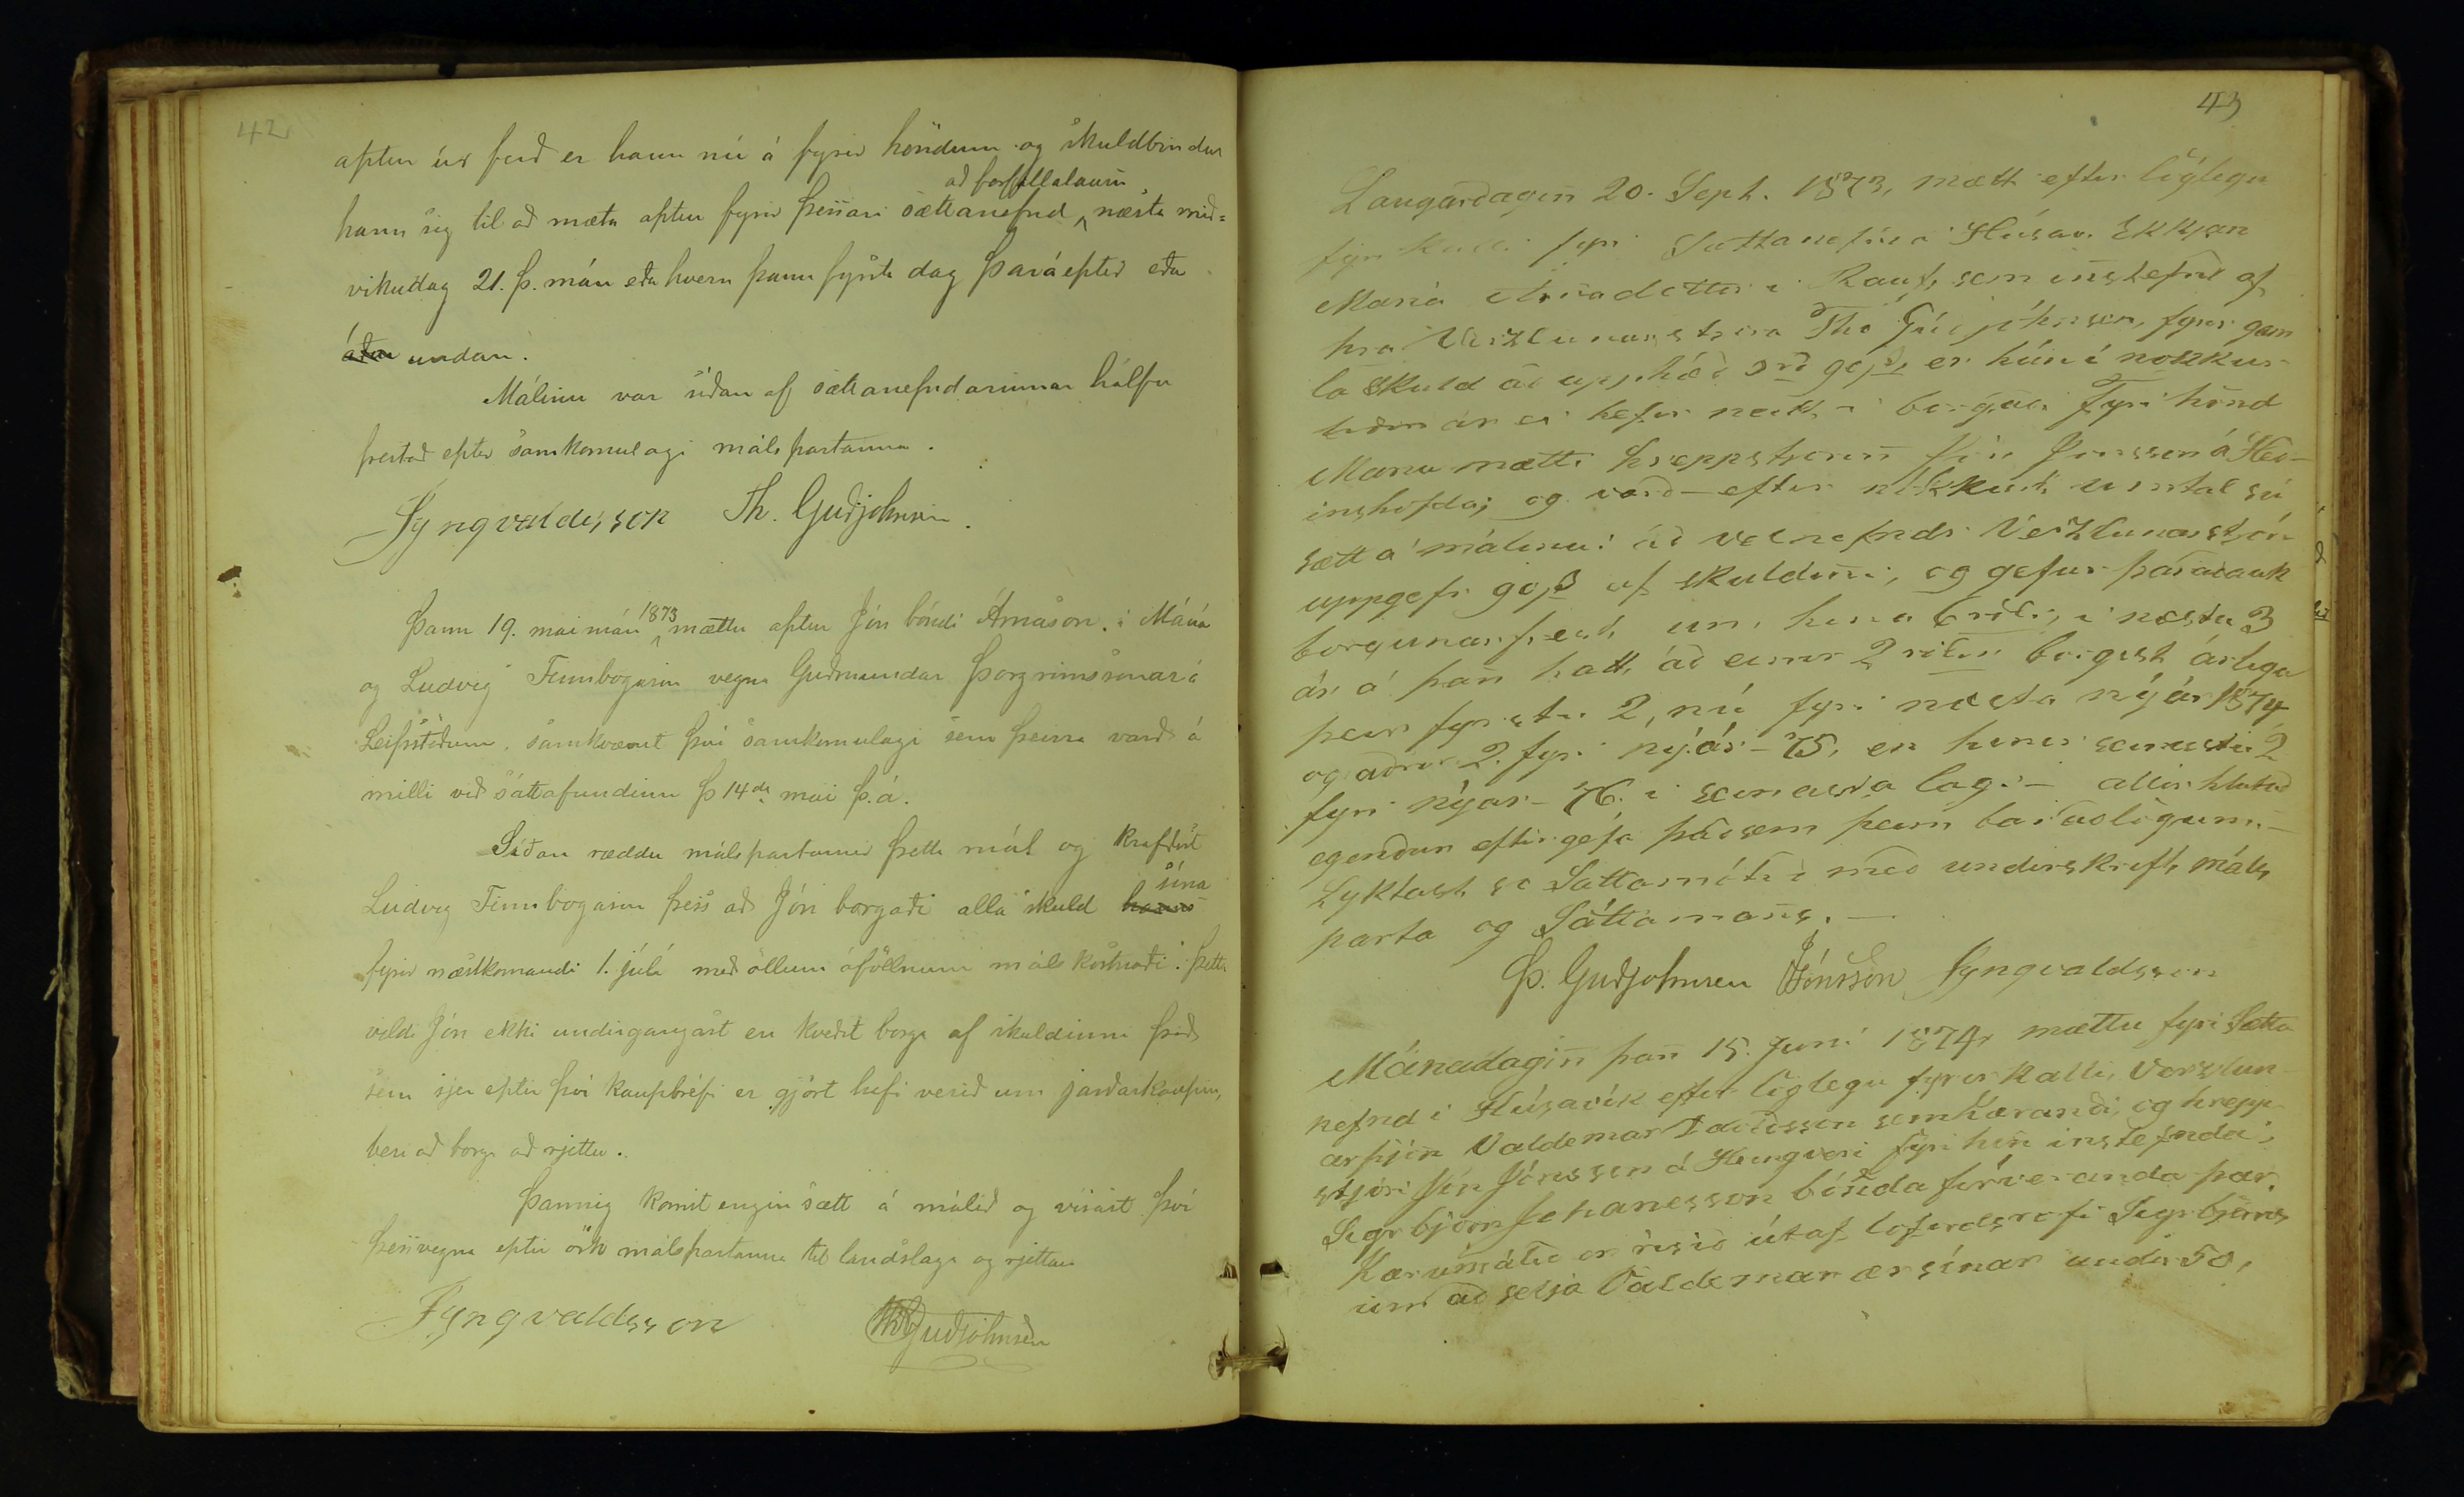 42
aptur úr ferð er hann nú á fyrir höndum og skuldbindur
að forfallalausu
hann sig til að mæta aptur fyrir þessari sættanefnd næsta mið=
vikudag 21. þ. mán eða hvern þann fyrsta dag þaráeptir eða
áður undan.
Málinu var síðan af sættanefndarinnar hálfu
frestað eptir samkomulagi málspartanna.
SYngvaldsson Th. Guðjohnsen.
Þann 19. mai mán 1873 mættu aptur Jón bóndi Árnason í Máná
og Ludvig Finnbogason vegna Guðmundar Þorgrimssonar á
Leifsstöðum, samkvæmt því samkomulagi sem þeirra varð á
milli við sáttafundinn þ 14da mai þ.á.
Síðan ræddu málspartarnir þetta mál og krafðist
sína
Ludvig Finnbogason þess að Jón borgaði alla skuld hanns
fyrir næstkomandi 1. júlí með öllum áföllnum málskostnaði. Þetta
vildi Jón ekki undirgangast en kveðst borga af skuldinni það
sem sjer eptir því kaupbréfi er gjört hefi verið um jarðarkaupin,
beri að borga að rjettu.
Þannig komst engin sætt á málið og vísast því
þessvegna eptir ósk málspartanna til landslaga og rjettar
SYngvaldsson ThGuðjohnsen
43
Laugardagin̄ 20. Sept. 1873, mætt eftir löglegu
fyrikalli fyri Sættanefnd í Húsav. Ekkjan
Maria Arnadottir í Rauf, sem instefnd af
hra Verzlunarstjóra Th. Guðjohnsen, fyrir gam
la skuld að upphæð rd sk, er hún í nokkur
undan ár ei hefur neitt í borgað. Fyri hönd
Mariu mætti hreppstjorin̄ Jón Jonsson á Héð-
inshöfða; og varð eftir nokkurt umtal sú
sætt á málinu: að velnefndr Verzlunarstjóri
uppgefr af skuldin̄i, og gefur þaraðauk
borgunarfrest um hina 6 rdli, í næstu 3
ár á þan̄ hátt, að einir 2 rdlir borgist árlega
þeir fyrstu 2, nú fyri næsta nýár 1874
og aðrir 2. fyri nýár-75, en hinir seinustu 2
fyri nýar-76. í seinasta lagi- allir hlutað
egendur eftirgefa það sem þeim bar að lögum.-
Lyktast so Sáttamótið með undirskrift máls
parta og Sáttamans.-
Þ. Guðjohnsen JJónsson SYngvaldsson
Mánadagin̄ þan̄ 15. Juni 1874, mættu fyri Sætta
nefnd í Húsavík eftir löglegu fyrirkalli, Verzlun
arþjón Valdemar Davidsson sem kærandi og hrepp
stjóri Jón Jónsson á fyri hin̄ instefnda
Sigrbjörn Johanesson bónda fórveranda þar.
Kærumálið er risið útaf loforðsrofi Sigrbjörns
um að selja Valdemar ær sínar undir 50,